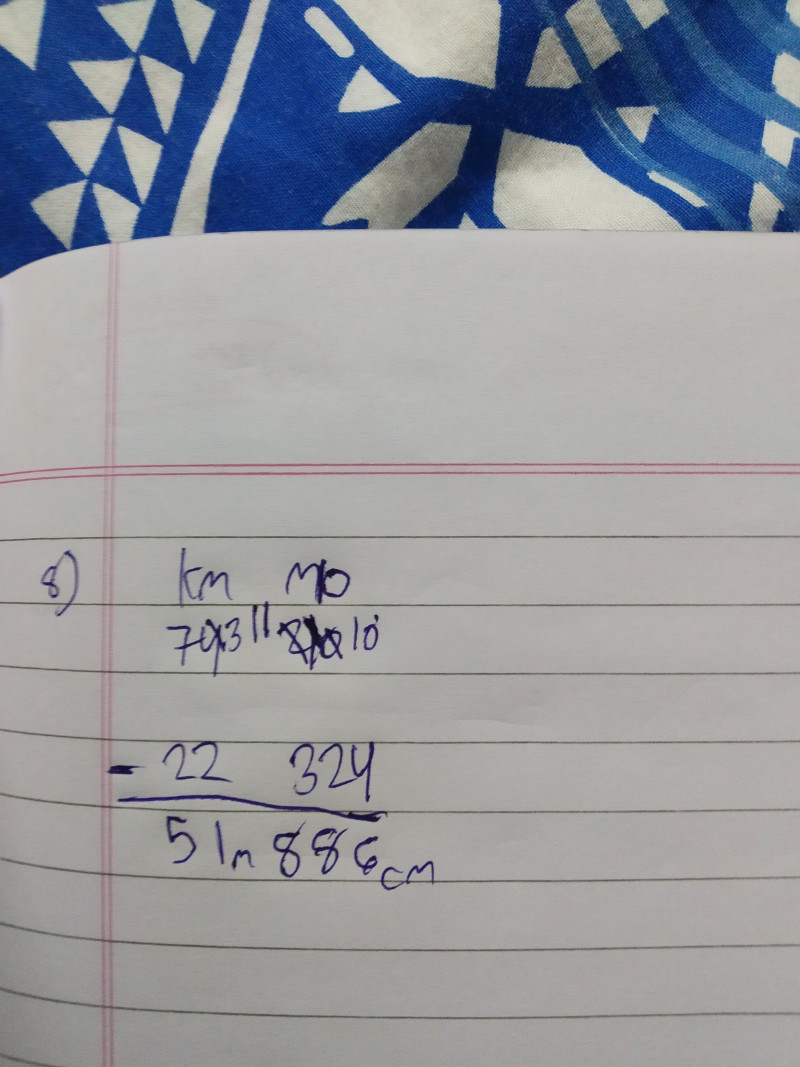 8) km m
74 3 11 10
- 22 324
51m 886cm